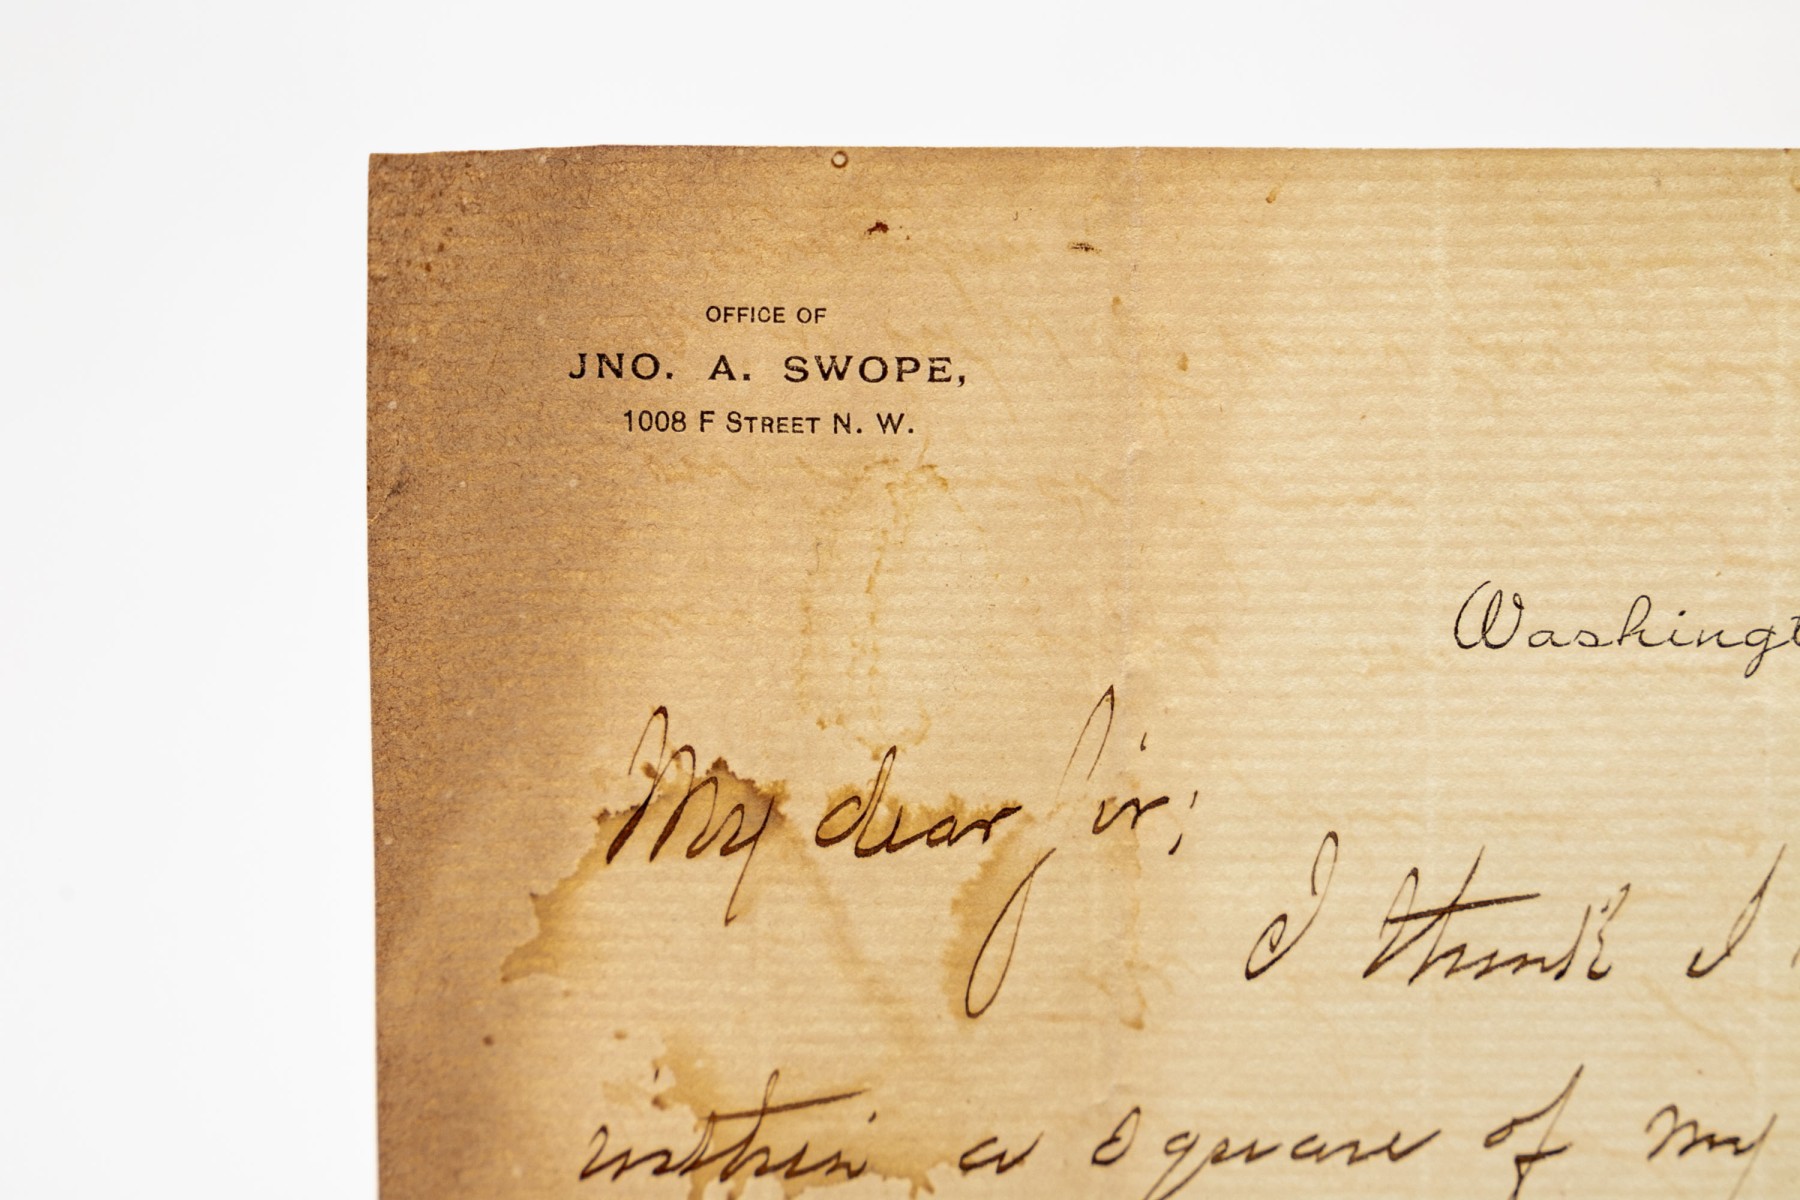 OFFICE OF
JNO. A. SWOPE,
1008 F STREET N. W.
Washingt
My dear Sir;
I think I
within a square of my